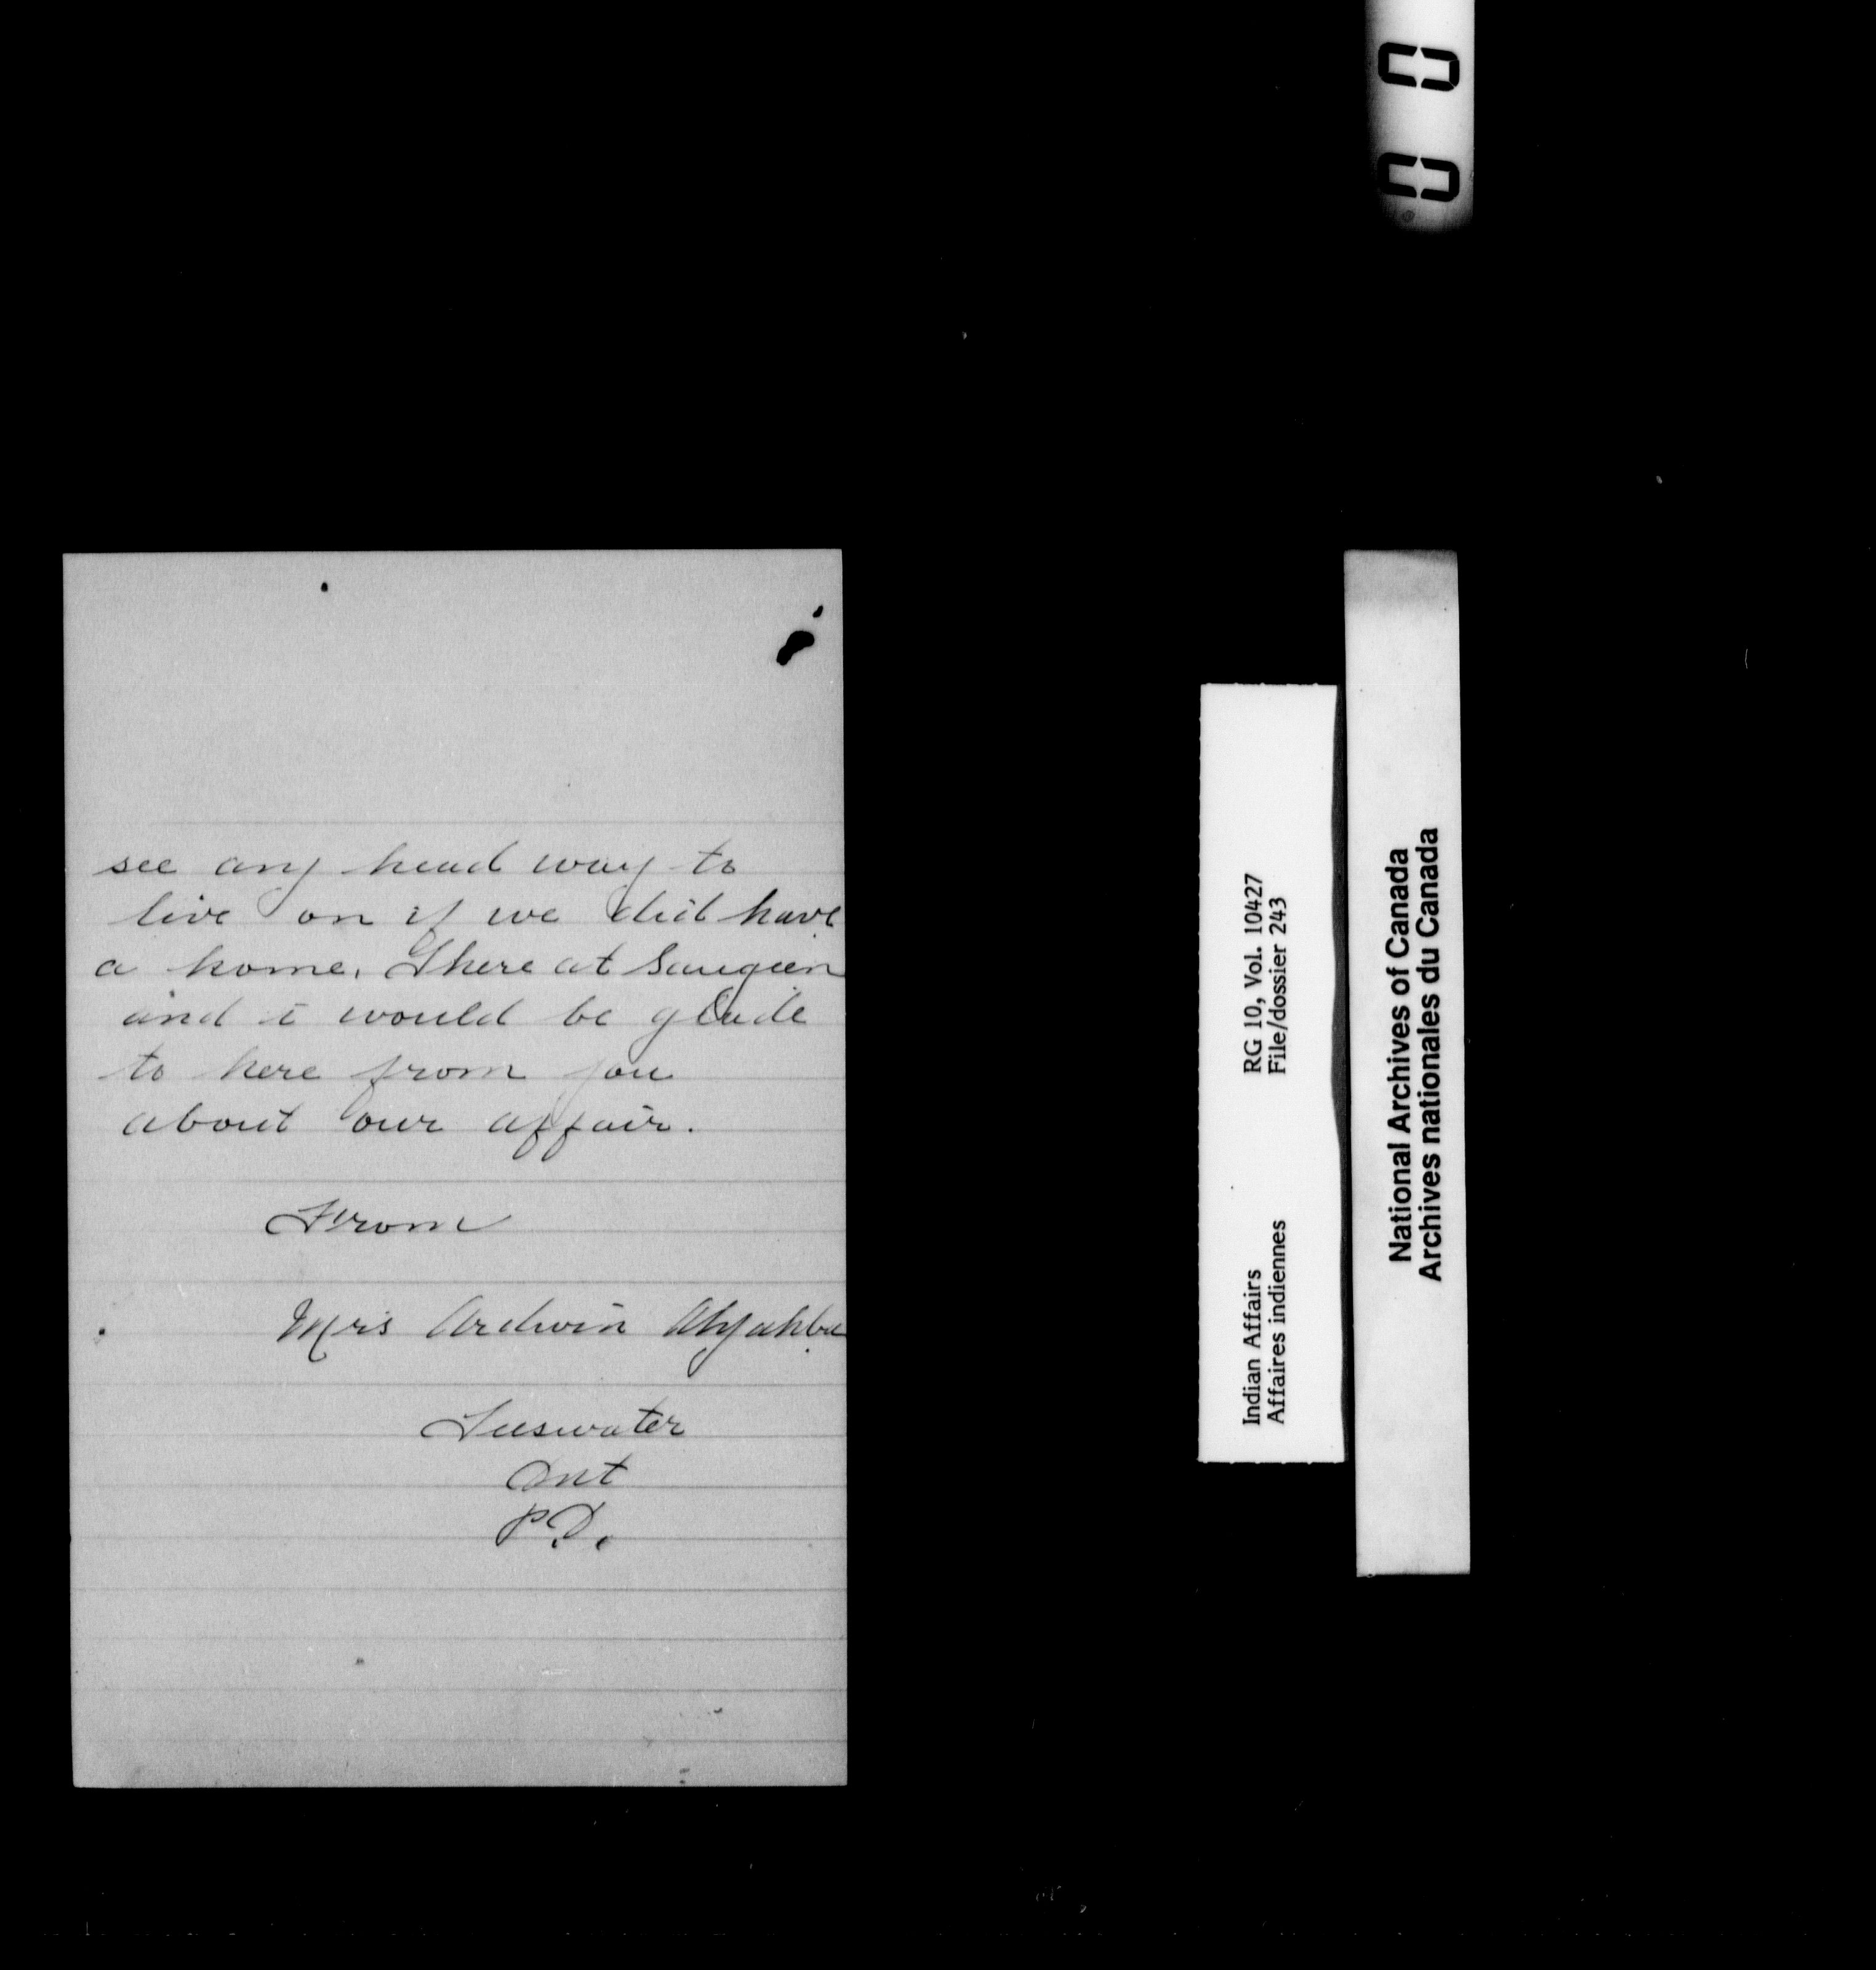 see any head way to
live on if we did have
a home. There at Saugeen
and i would be glade
to here from you
about our affair.
From
Mrs Ardwin
Teeswater
Ont
P.O.
Indian Affairs RG 10, Vol. 10427
Affaires indiennes File/dossier 243
National Archives of Canada
Archives nationales du Canada
00